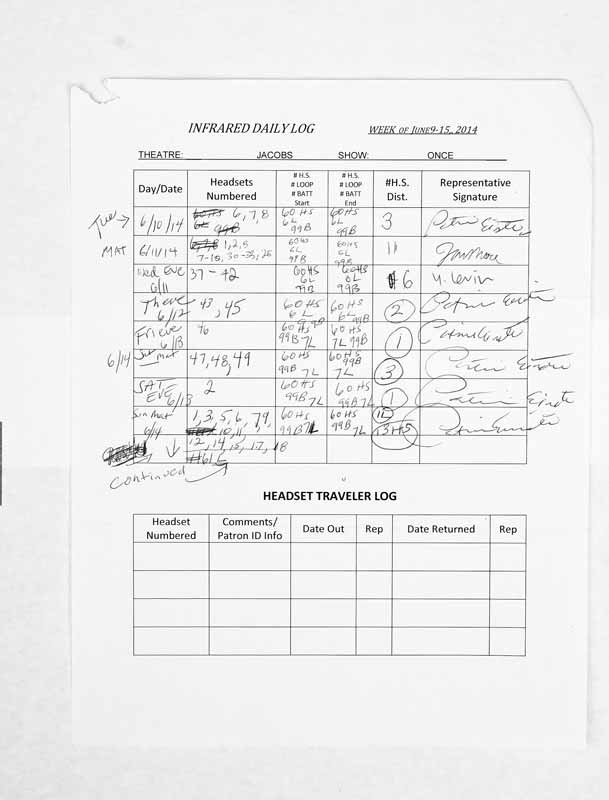 INFRARED DAILY LOG WEEK OF JUNE9-15, 2014
THEATRE: JACOBS SHOW: ONCE
Day/Date Headsets Numbered # H.S. # LOOP # BATT Start # H.S. # LOOP # BATT End #H.S. Dist. Representative Signature
Tue → 6/10/14 6, 7, 8 60 HS 6L 99B 60 HS 6L 99B 3
MAT 6/11/14 1, 2, 5 7-10, 30-35, 26 60 HS 6L 99B 60 HS 6L 99B 11
Wed Eve 6/11 37 - 42 60 HS 6L 99B 60 HS 6L 99B 6 Y. Levin
6/12 43, 45 60 HS 6L 99B 60 HS 6L 99B 2
Fri eve 6/13 46 60 HS 99B 7L 60 HS 7L 99B 1
6/14 Sat mat 47, 48, 49 60 HS 99B 7L 60 HS 99B 7L 3
SAT EVE 6/13 2 60 HS 99B 7L 60 HS 99B 7L 1
Sun Mat 6/14 1, 3, 5, 6, 79, 60 HS 99B 7L 60 HS 99B 7L 12
10, 11, 13 HS
12, 14, 15, 17, 18
continued
HEADSET TRAVELER LOG
Headset Numbered Comments/ Patron ID Info Date Out Rep Date Returned Rep